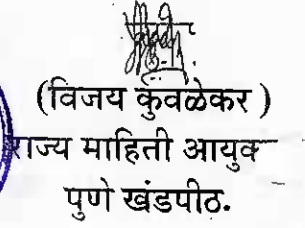 (विजय कुंवळेकर )
राज्य माहिती आयुक्त
पुणे खंडपीठ.